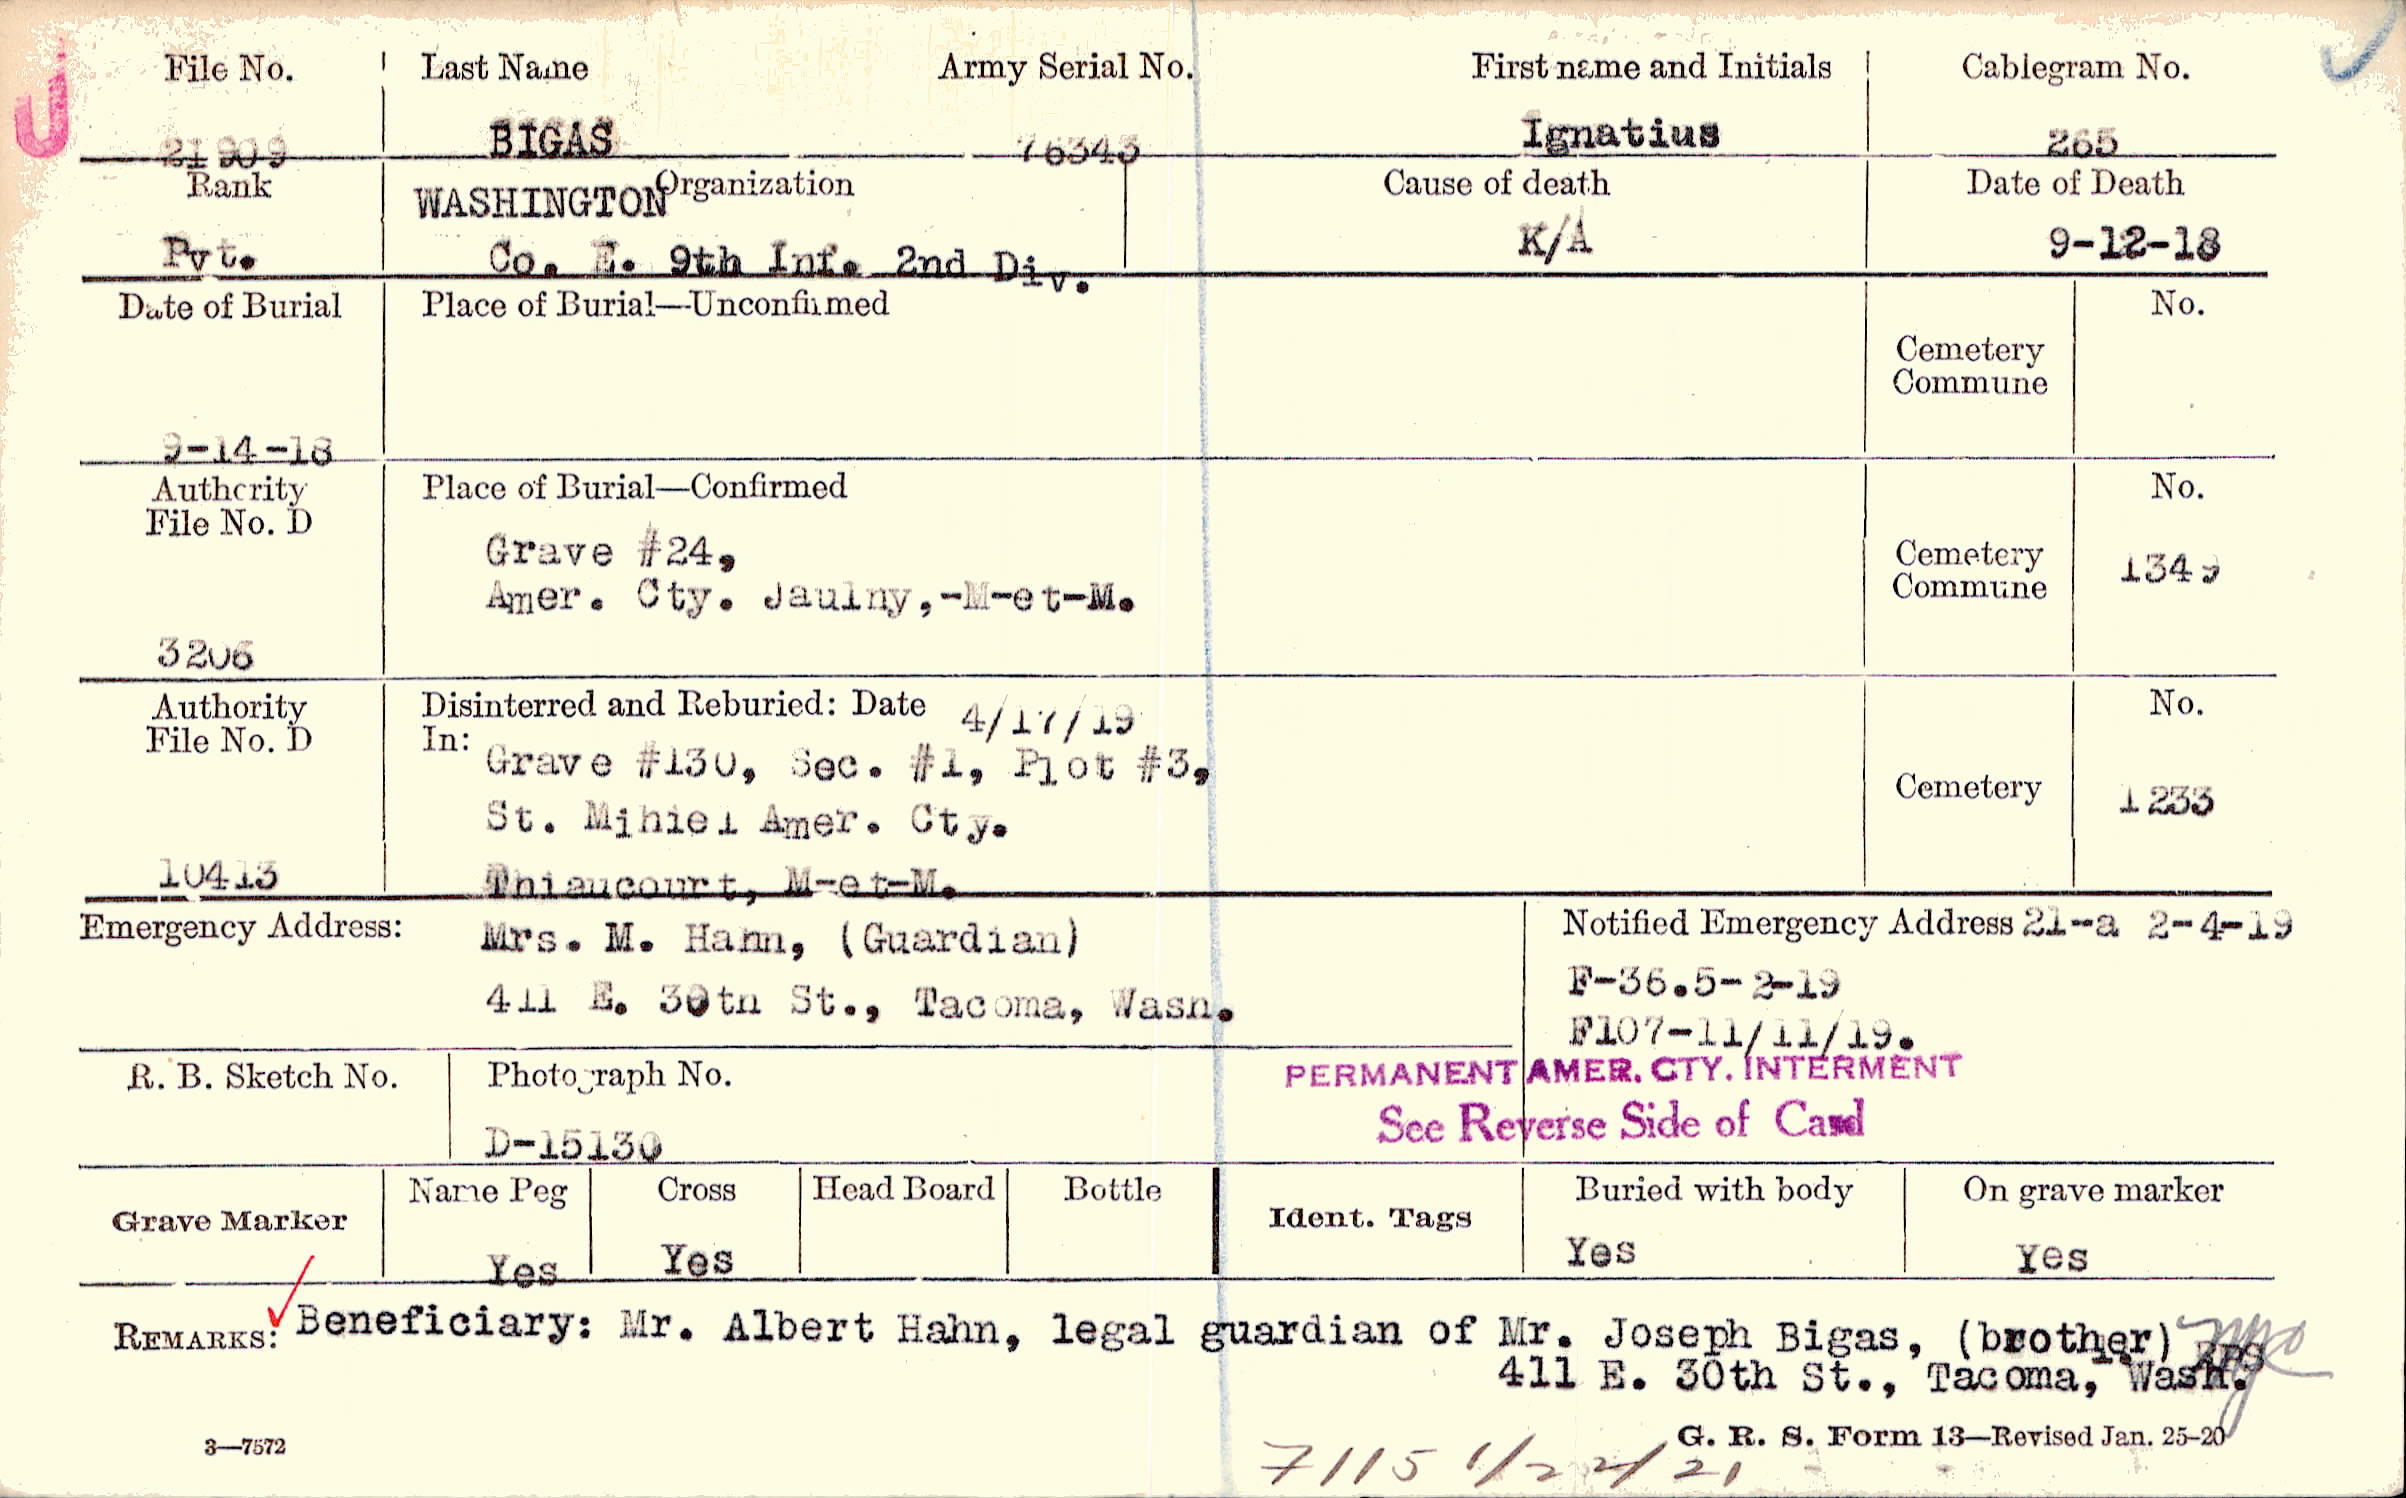 U
File No. Last Name Army Serial No. First name and Initials Cablegram No.
21909 BIGAS 76343 Ignatius 265
Rank Organization Cause of death Date of Death
WASHINGTON
Pvt. Co. E. 9th Inf. 2nd Div. K/A 9-12-18
Date of Burial Place of Burial—Unconfirmed No.
Cemetery
Commune
9-14-18
Authority Place of Burial—Confirmed No.
File No. D
Grave #24,
Cemetery
Commune 1349
Amer. Cty. Jaulny,-M-et-M.
3206
Authority Disinterred and Reburied: Date 4/17/19 No.
File No. D In:
Grave #130, Sec. #1, Plot #3,
Cemetery 1233
St. Mihiel Amer. Cty.
10413 Thiaucourt, M-et-M.
Emergency Address: Mrs. M. Hahn, (Guardian) Notified Emergency Address 21-a 2-4-19
F-36.5-2-19
411 E. 30th St., Tacoma, Wash.
F107-11/11/19.
R. B. Sketch No. Photograph No. PERMANENT AMER. CTY. INTERMENT
See Reverse Side of Card
D-15130
Grave Marker Name Peg Cross Head Board Bottle Ident. Tags Buried with body On grave marker
Yes Yes Yes Yes
REMARKS: Beneficiary: Mr. Albert Hahn, legal guardian of Mr. Joseph Bigas, (brother)
411 E. 30th St., Tacoma, Wash.
3—7572 G. R. S. Form 13—Revised Jan. 25-20
7115 1/22/21